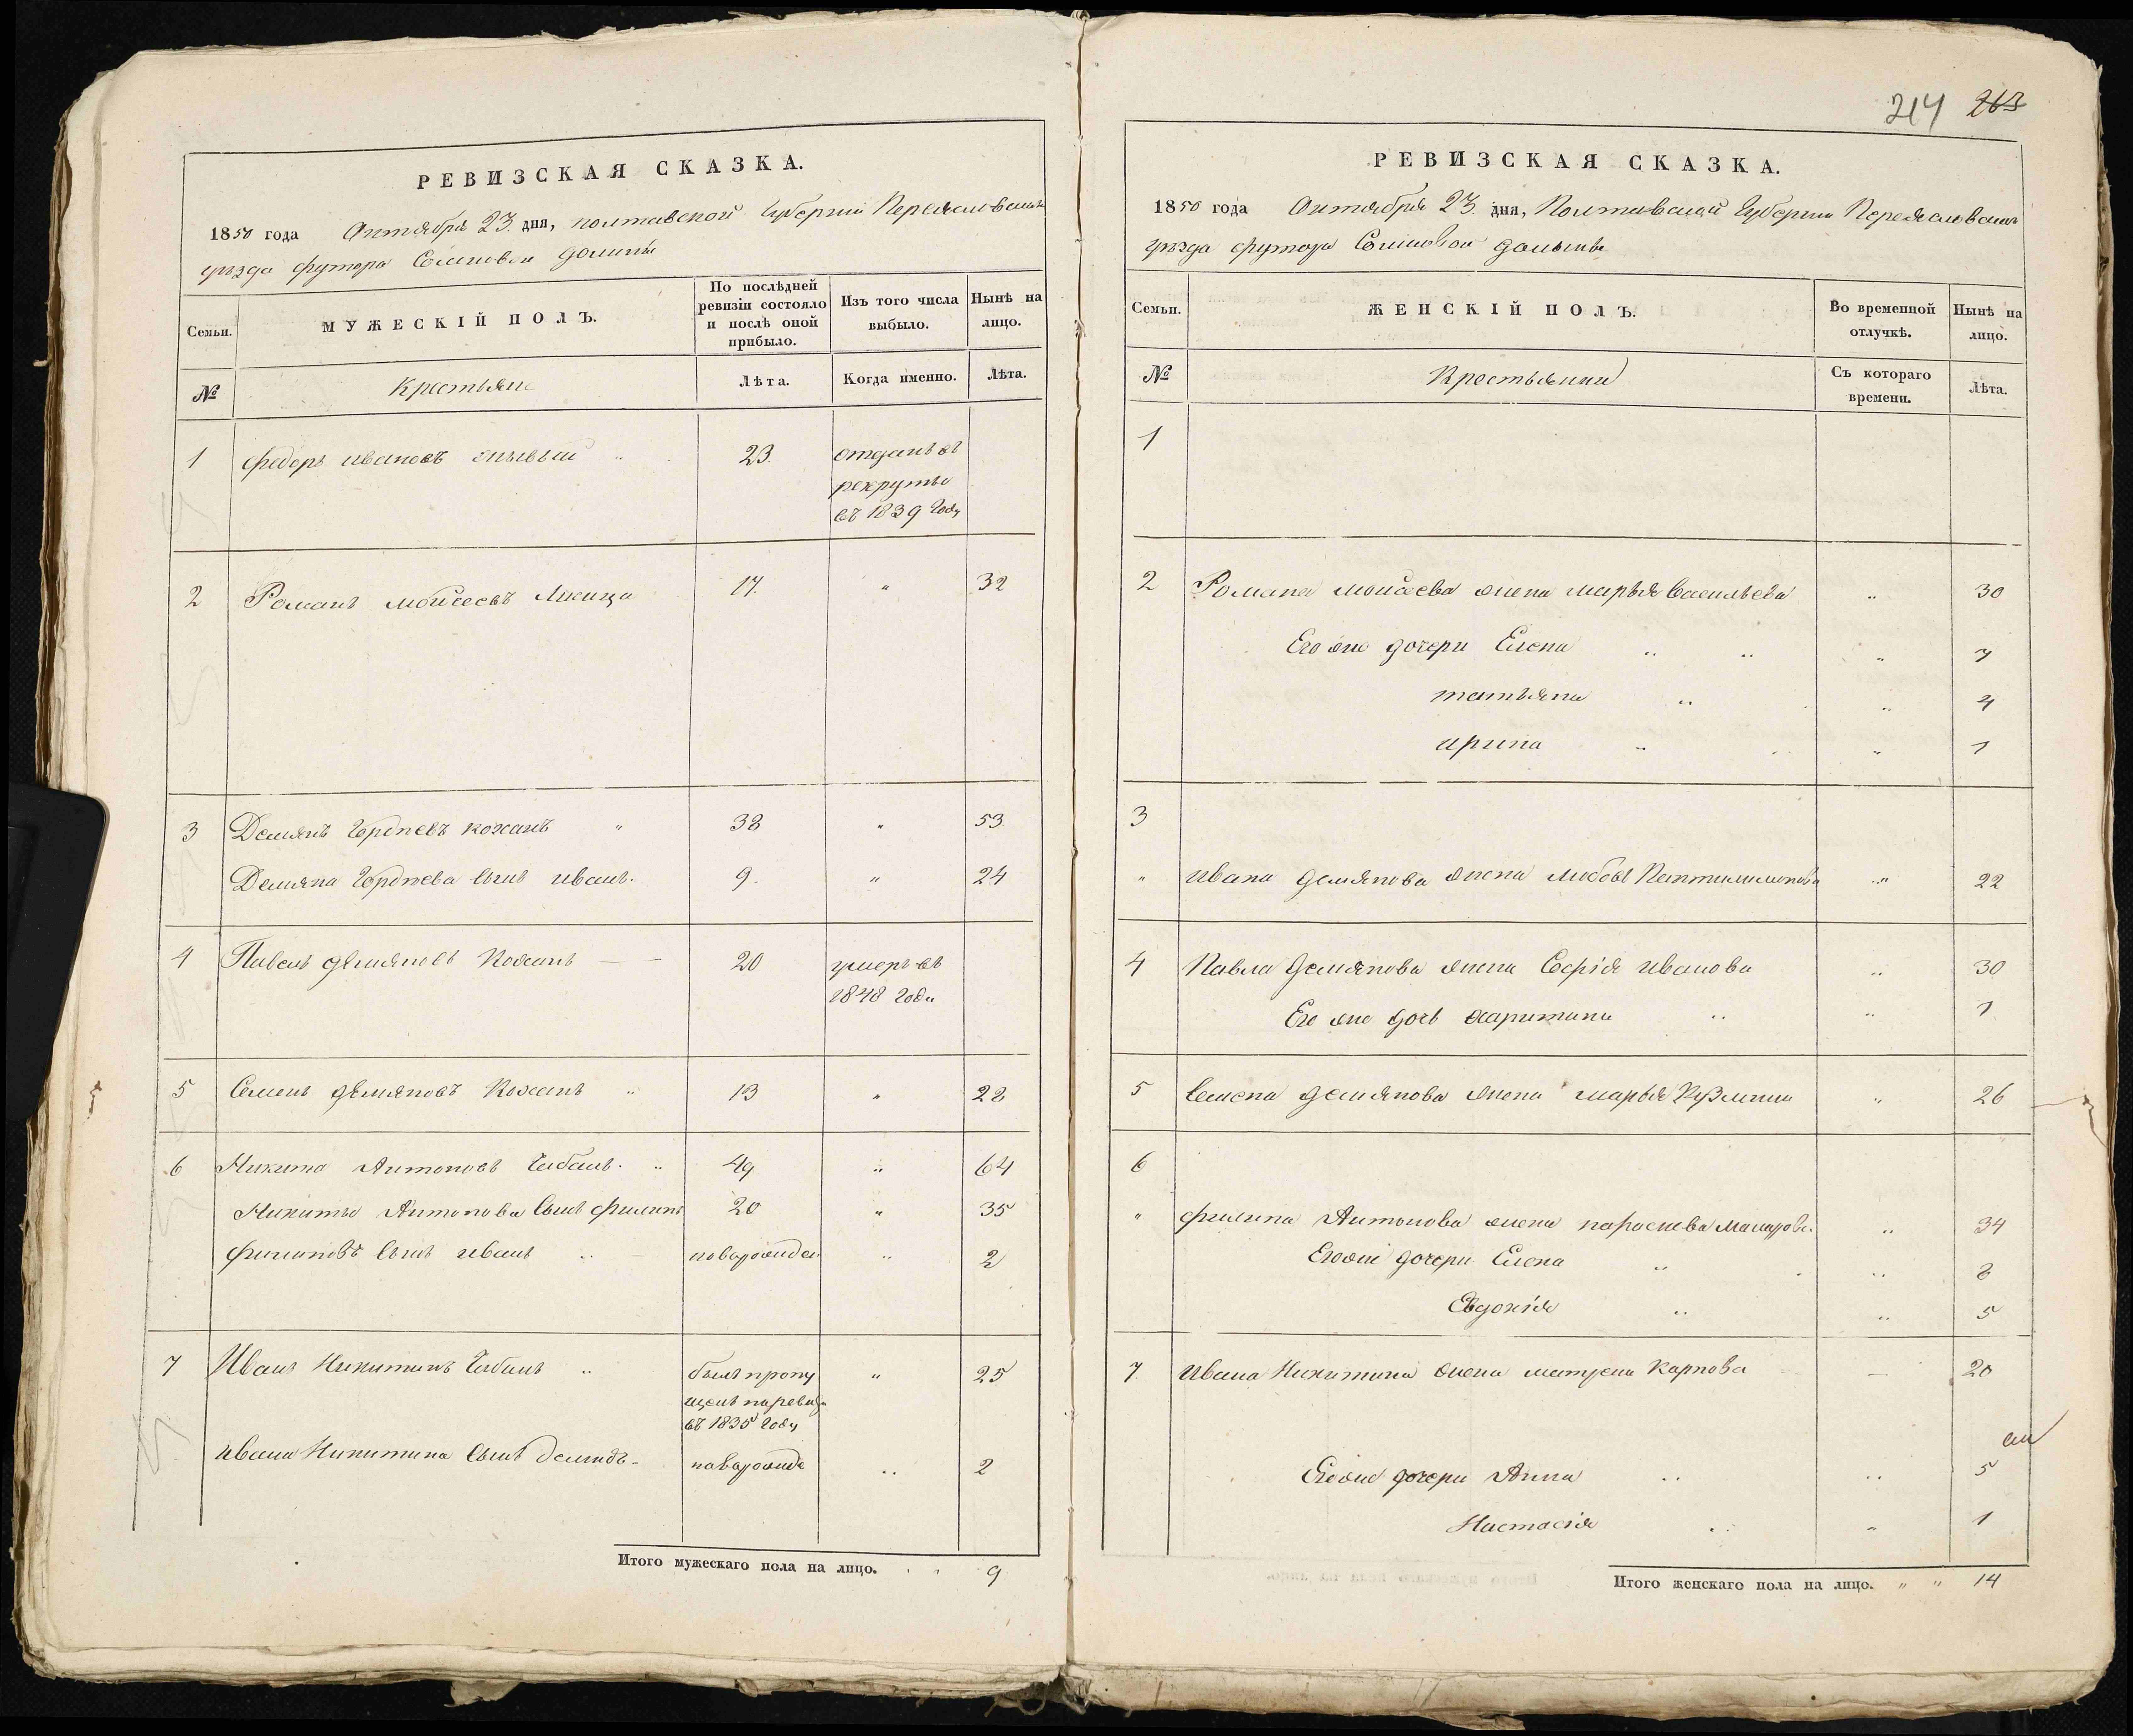 РЕВИЗСКАЯ СКАЗКА.
1850 года Октября 23 дня, полтавской Губернии Переяславскаго
уезда футора долины
Семьи.
МУЖЕСКІЙ ПОЛЪ.
По послѣдней
ревизіи состояло
и послѣ оной
прибыло.
Изъ того числа
выбыло.
Нынѣ на
лицо.
№
Крестьяне
Лѣта.
Когда именно.
Лѣта.
1 Федоръ ивановъ 23 отданъ въ
рекруты
въ 1839 Году
2 Романъ моисеевъ 17 " 32
3 Демянъ кожанъ " 38 " 53
Демяна сынъ иванъ. 9. " 24
4 Павелъ демяновъ Кожанъ — – 20 умеръ въ
1848 Годи
5 Семенъ демяновъ Кожанъ " 13 " 28
6 Никита Антоновъ Чабанъ. " 49 " 64
Никиты Антонова сынъ филипъ 20 " 35
филиповъ сынъ иванъ " – новорожден " 2
7 Иванъ Никитинъ Чабанъ " былъ пропу " 25
щенъ поревиз
въ 1835 Году
ивана Никитина сынъ демидъ - новорожде " 2
Итого мужескаго пола на лицо. " " 9
214 263
РЕВИЗСКАЯ СКАЗКА.
1850 года Октября 23 дня, Полтавской Губернии Переяславскаго
уезда футора долины
Семьи.
ЖЕНСКІЙ ПОЛЪ.
Во временной
отлучкѣ.
Нынѣ на
лицо.
№
Крестьянки
Съ котораго
времени.
Лѣта.
1
2 Романа моисеева жена марья васильева " 30
Его же дочери Елена " " " 7
татьяна " " 4
ирина " " " 1
3
" ивана демянова жена любовь " 22
4 Павла демянова жена Софія иванова " 30
Его же дочь харитина " " 1
5 Семена демянова жена марья Кузмина " 26
6
" филипа Антонова жена параскева макарова " 34
Егоже дочери Елена " " 8
Евдокія " " 5
7. ивана Никитина жена матрена Карпова — 20
Егоже дочери Анна " " 5
Настасія " " 1
Итого женскаго пола на лицо. " " 14